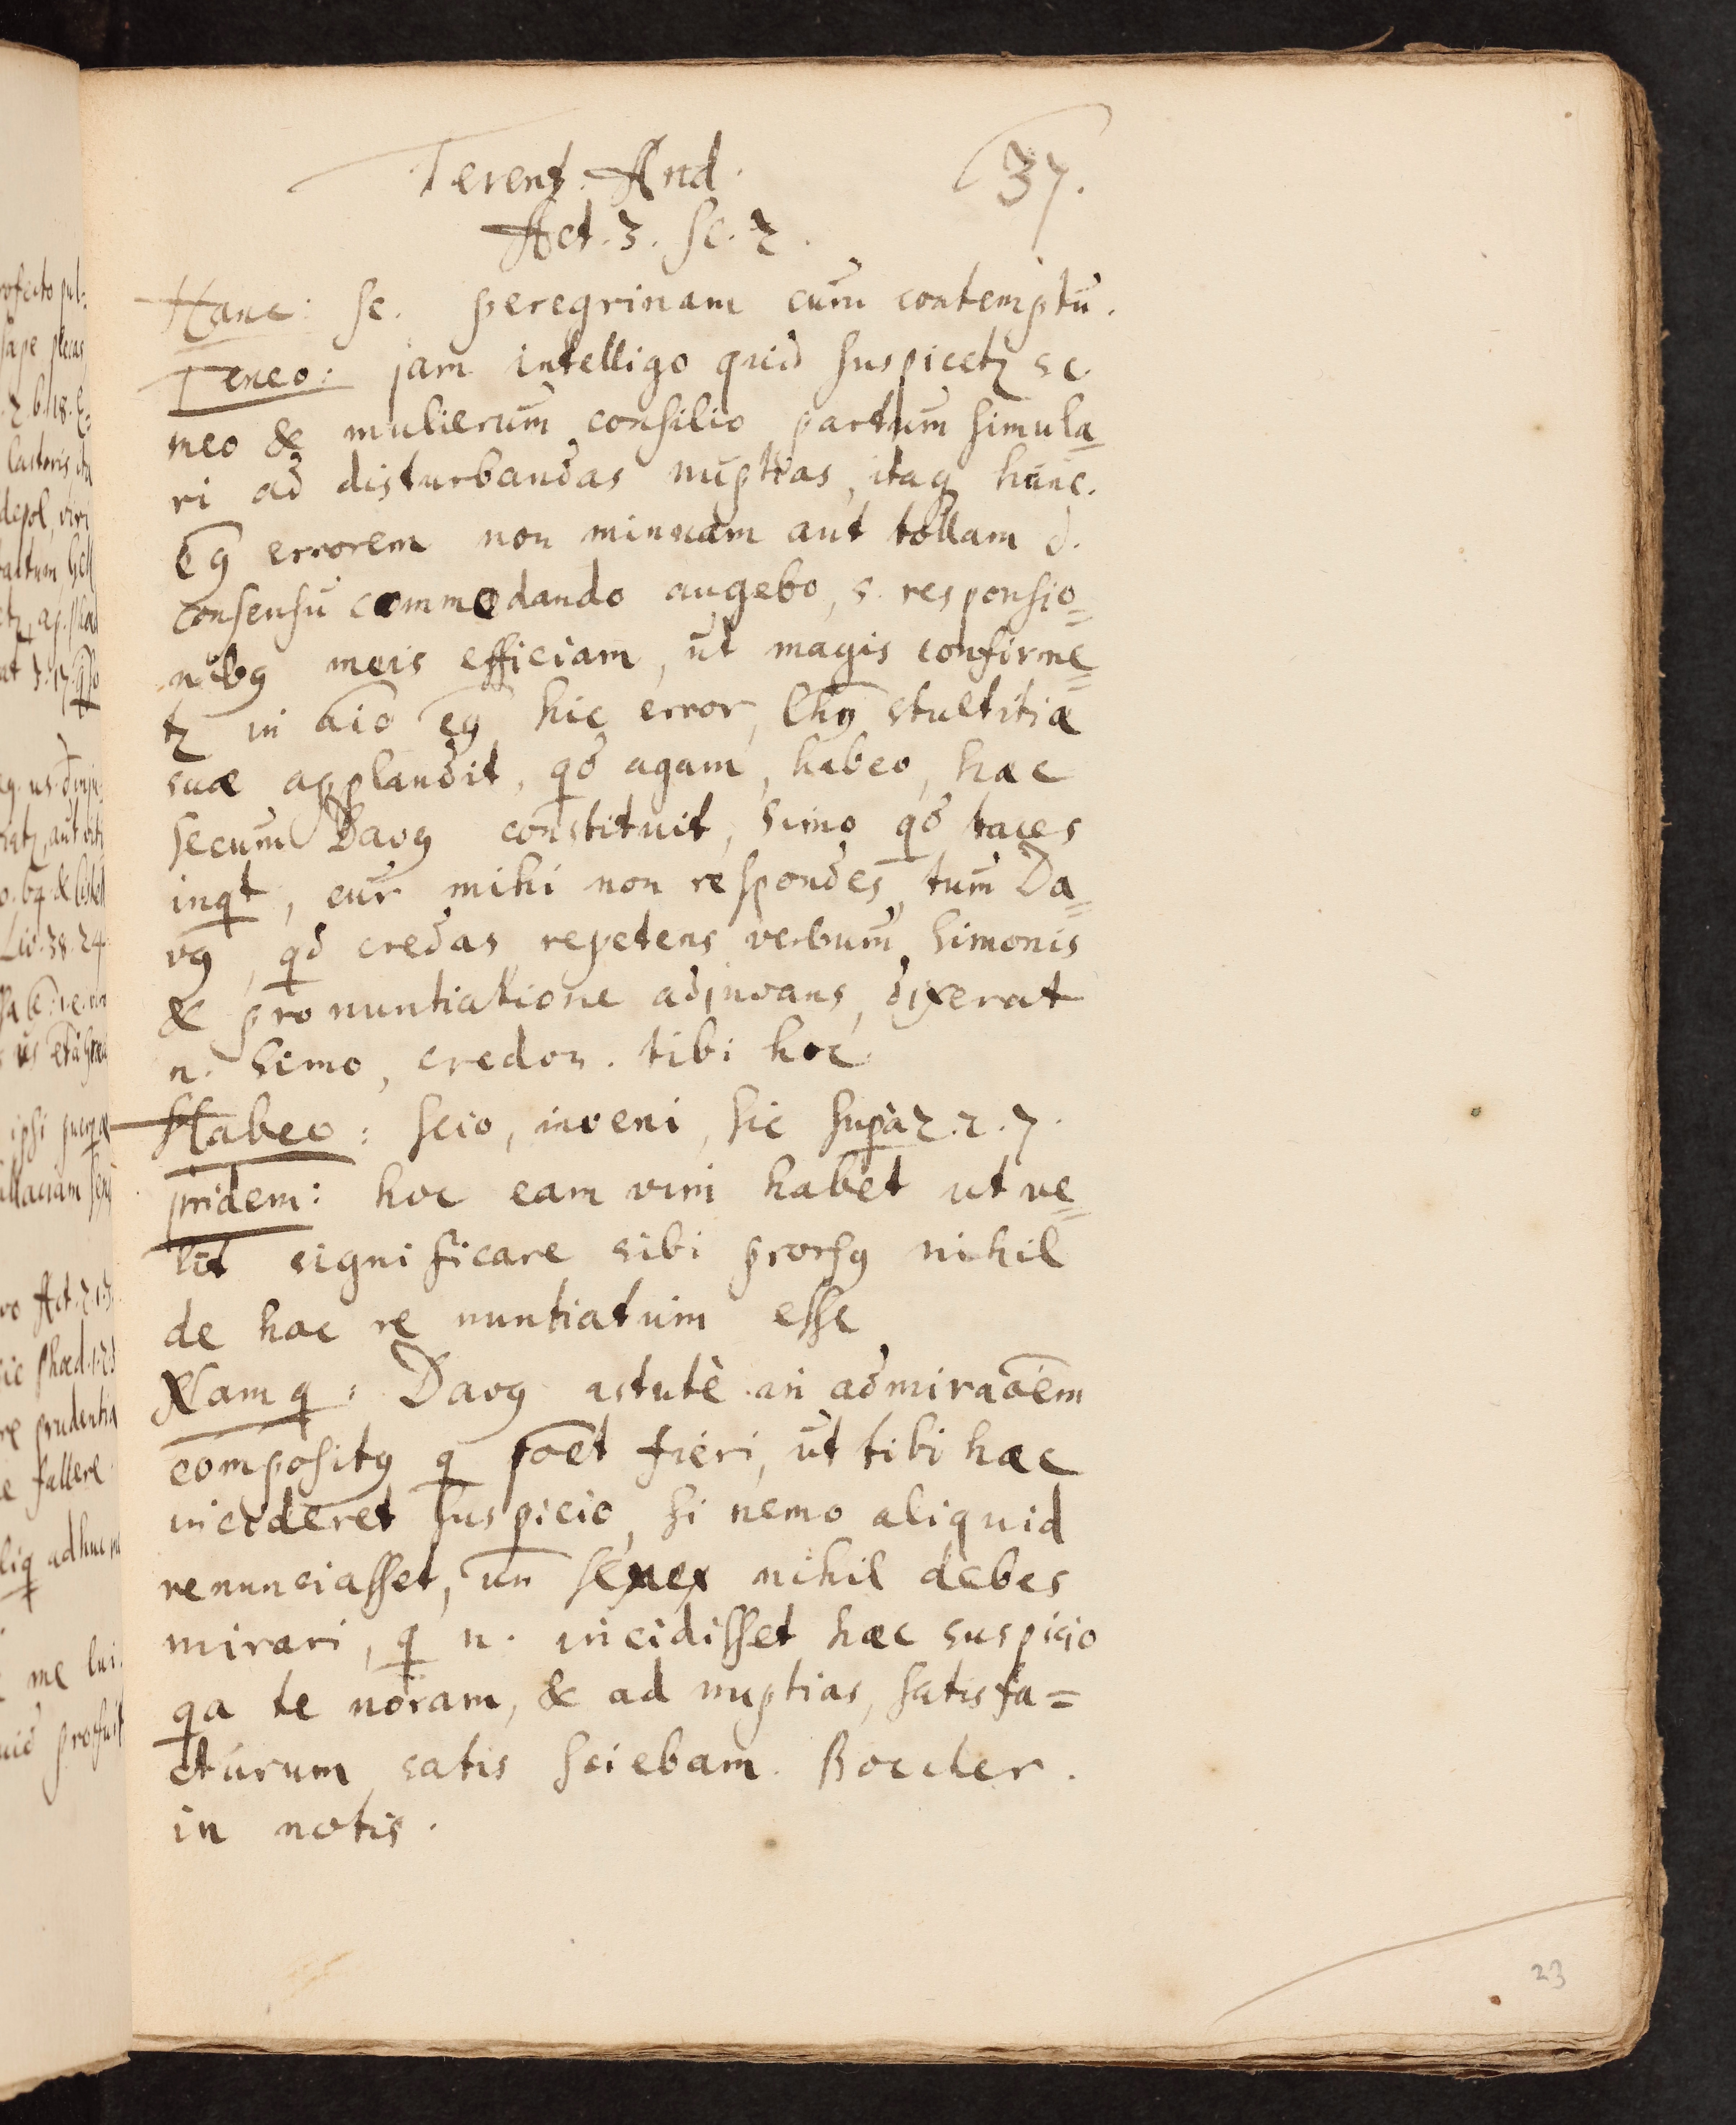 Terent. And.
37.
Act. 3. sc. 2.
Hanc: sc. peregrinam cum contemptu.
Teneo: jam intelligo quid suspicetꝛ sc.
meo & mulierum consilio partum simula
ri ad disturbandas nuptias, itaq hunc.
eꝗ errorem non minuam aut tollam d.
consensu commodando augebo, s. responsio=
nibꝗ meis efficiam, ut magis confirme=
tꝛ in aīo eꝗ hic error, stultitiæ
suæ applaudit, qd agam, habeo, hæc
secum Davꝗ constituit, Simo qd taces
inqt, cur mihi non respondes, tum Da=
vꝗ, qd credas repetens verbum Simonis
& pronuntiatione adjuvans, dixerat
n. Simo, credon. tibi hoc
Habeo: scio, inveni, sic supra 2. 2. 7.
pridem: hoc eam vim habet ut ve=
lit significare sibi prorsꝗ nihil
de hac re nuntiatum esse
Namq: Davꝗ astutè in admiraōēm
compositꝗ q poēt fieri, ut tibi hæc
incideret suspicio, si nemo aliquid
renunciasset, un senex nihil debes
mirari, q n. incidisset hæc suspicio
qa te noram, & ad nuptias, satisfa=
cturum satis sciebam. Boecler.
in notis.
23
rofecto pul=
sæpe
lasteris
depol, viri
Liv. 38. 24.
Act. 2. 1. 3.
sic Phæd. 1. 2
prudentia
fallere
adhuc
me
profuit